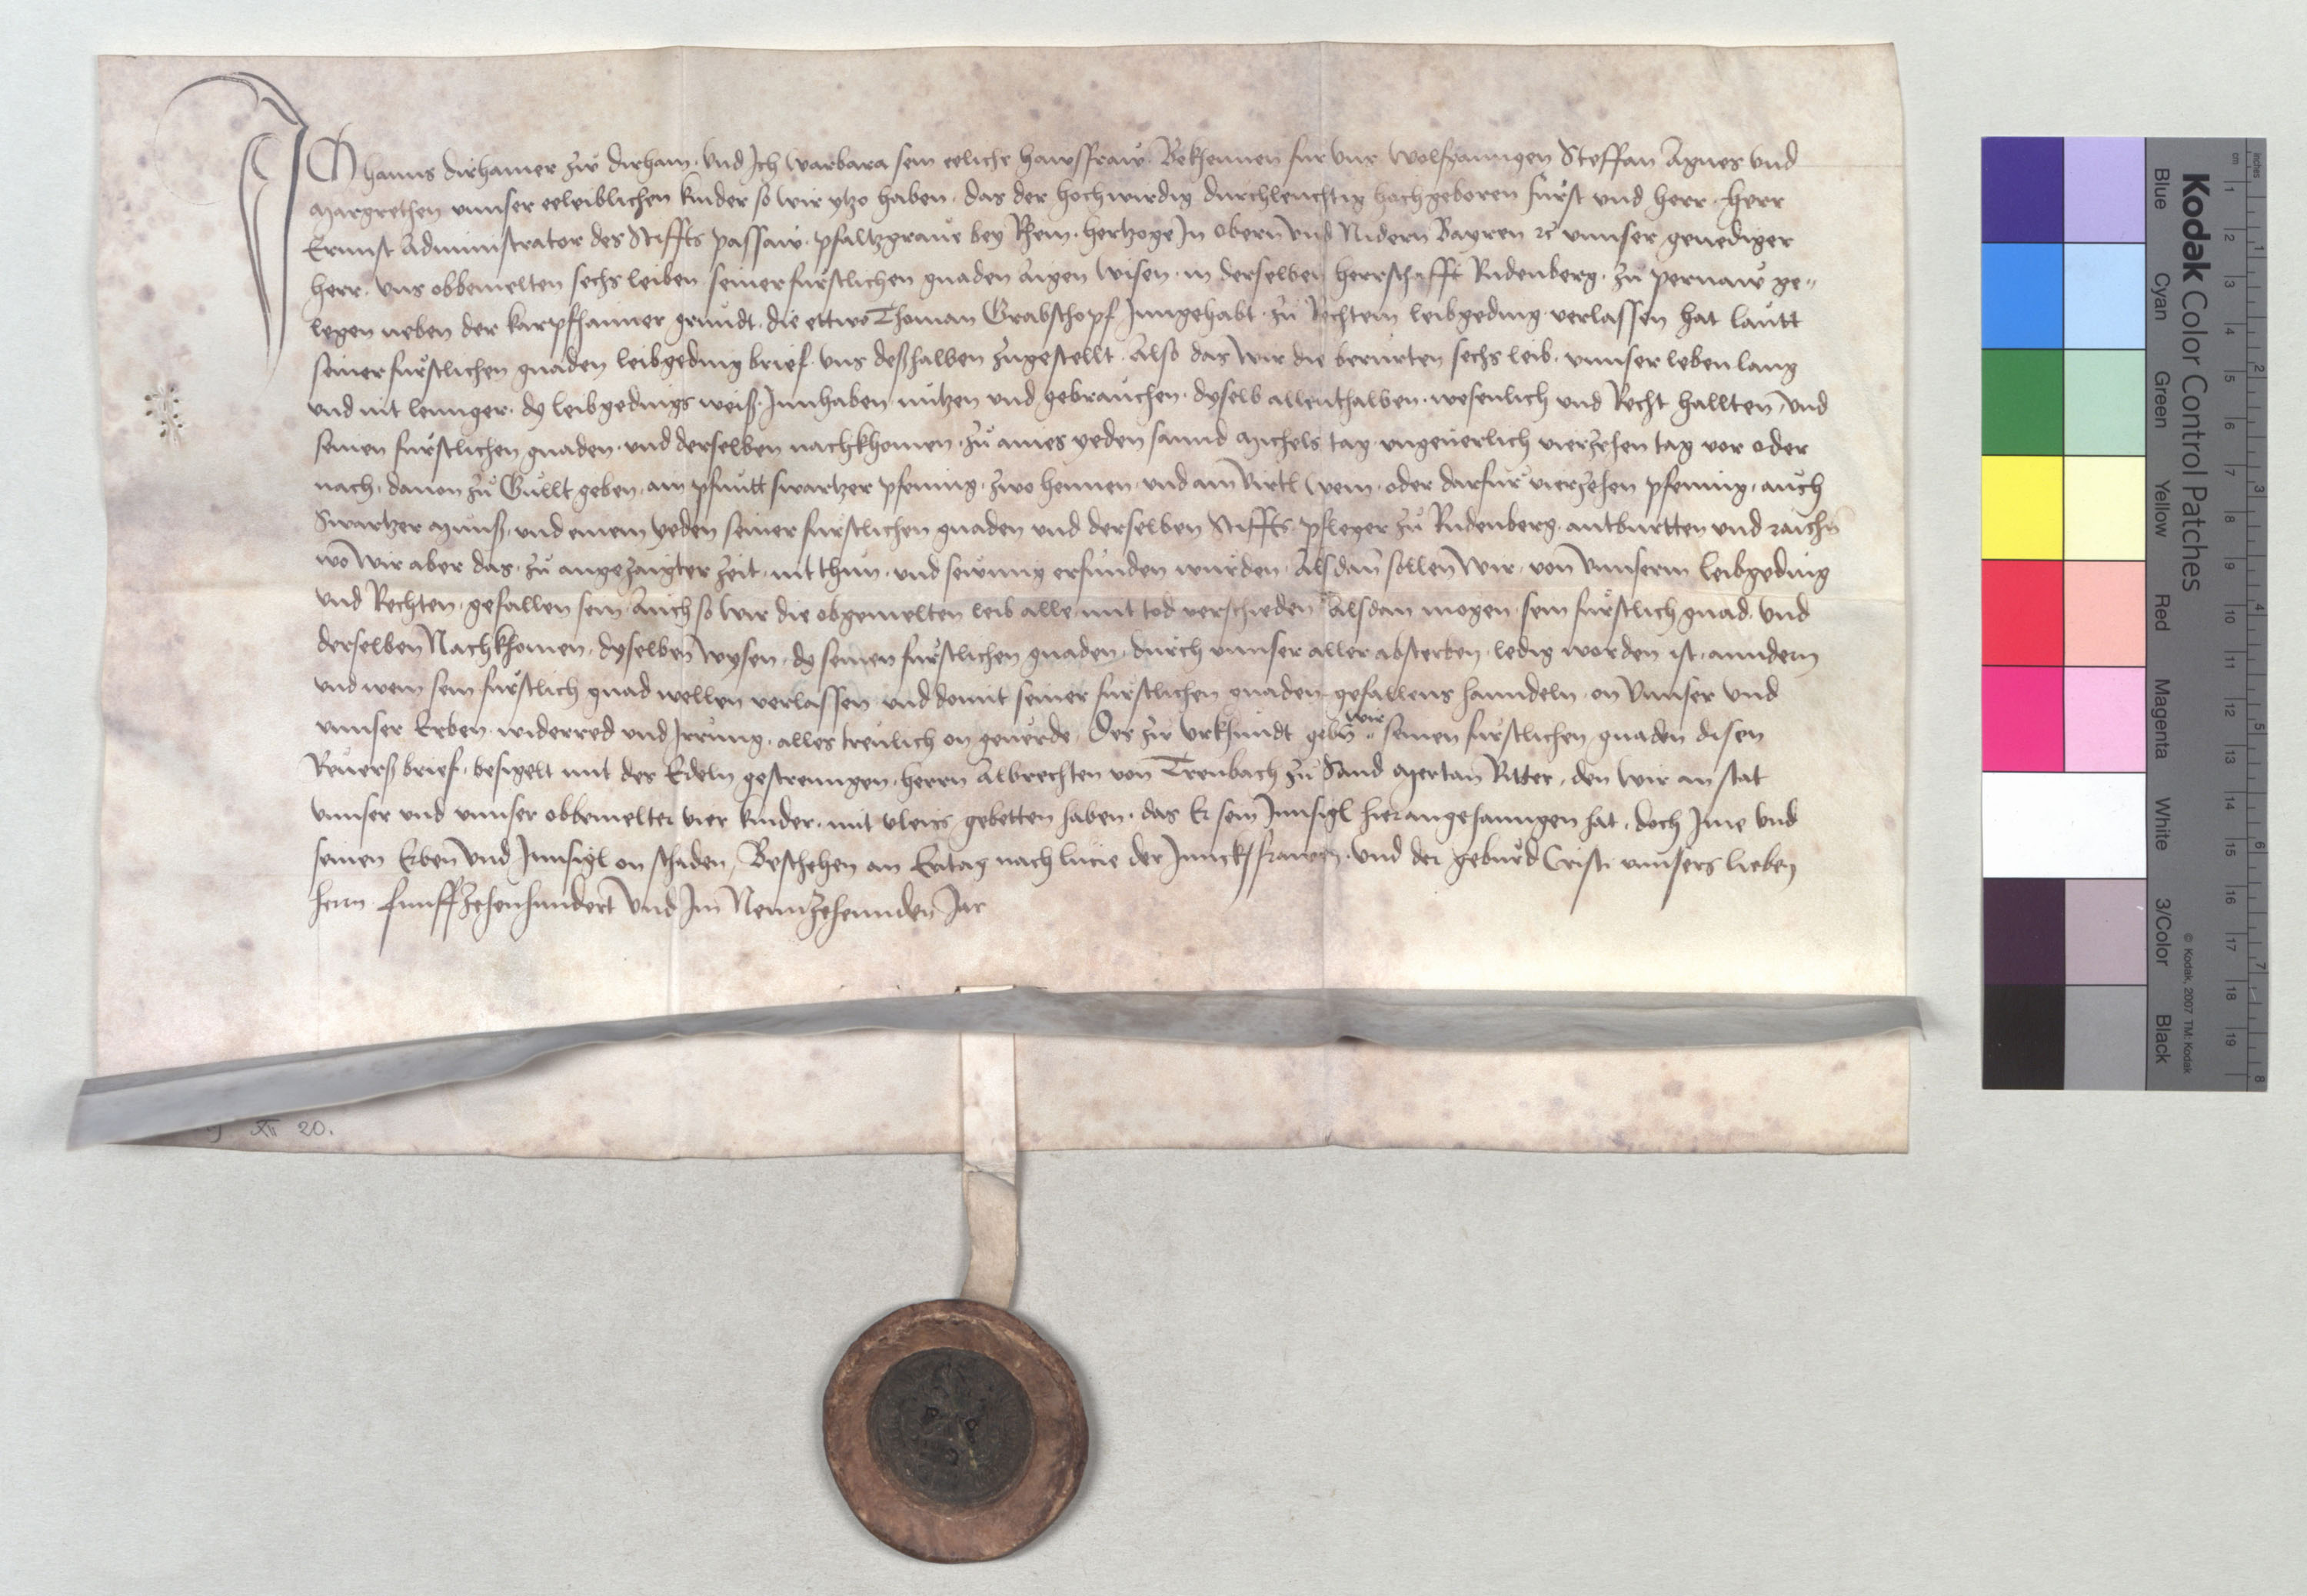 Ich hanns dirhamer zw dirham, vnd Ich warbara sein eeliche hawsfraw. Bekhennen fur vns wolfganngen Steffan Agnes vnd
Margrethen vnnser eeleiblichen kinder so wir ytzo haben. das der hochwirdig durchleuchtig hochgeboren furst vnd herr. herr
Ernnst Administrator des Stiffts passaw. pfaltzgraue bey Rhein. hertzoge In obern vnd Nidern Bayren ꝛc vnnser genediger
herr. vns obbemelten sechs leiben seiner furstlichen gnaden aigen wisen. in derselben herrschafft Ridenberg. zu pernaw ge-
legen neben der karpfhamer grundt. die ettwo Thoman Grabschopf Inngehabt. zu Rechtem leibgeding verlassen hat lautt
seiner furstlichen gnaden leibgeding brief. vns deßhalben zugestellt. Also das wir die berurten sechs leib. vnnser leben lang
vnd nit lennger. dy leibgedings weiß. Innhaben nutzen vnd gebrauchen. dyselb allenthalben. wesenlich vnd Recht hallten, vnd
seinen furstlichen gnaden. vnd derselben nachkhomen. zu aines yeden sannd Michels tag. vngeuerlich vierzehen tag vor oder
nach. dauon zu Gullt geben. ain pfundt swartzer pfening. zwo hennen. vnd ain virtl wein. oder darfur vierzehen pfening. auch
Swartzer Munss. vnd einem yeden seiner furstlichen gnaden vnd derselben Stiffts pfleger zu Ridenberg. antburtten vnd raichn
wo wir aber das. zu angezaigter zeit. nit thun. vnd sewmig erfunden wurden. Alsdan sollen wir. von vnnserm leibgeding
vnd Rechten. gefallen sein. Auch so wir die obgemelten leib alle mit tod verschieden. Alsdan mogen sein furstlich gnad. vnd
derselben Nachkhomen. dyselben wysen. dy seinen furstlichen gnaden. durch vnnser aller absterben. ledig worden ist. anndern
vnd wem sein furstlich gnad wellen verlassen. vnd domit seiner furstlichen gnaden gefallens hanndeln. on vnnser vnd
vnnser Erben. widerred vnd Irrung. alles treulich on geuerde. Des zu vrkhundt gebn wir seinen furstlichen gnaden disen
Reuerß brief. besigelt mit des Edeln gestrenngen. herrn Albrechten von Trenbach zu Sand Mertan Ritter. den wir an stat
vnnser vnd vnnser obbemelter vier kinder. mit vleiss gebetten haben. das Er sein Innsigl hieran gehanngen hat. doch Ime vnd
seinen Erben vnd Innsigl on schaden. Beschehen an Eritag nach lucie der Junckhfrawen. vnd der geburd Cristi vnnsers lieben
herrn funffzehenhundert vnd Im Neunzehennden Jar
XII 20.
Kodak Color Control Patches
Blue
Cyan
Green
Yellow
Red
Magenta
White
3/Color
Black
© Kodak, 2007 TM: Kodak
cm
1
2
3
4
5
6
7
8
9
10
11
12
13
14
15
16
17
18
19
inches
1
2
3
4
5
6
7
8